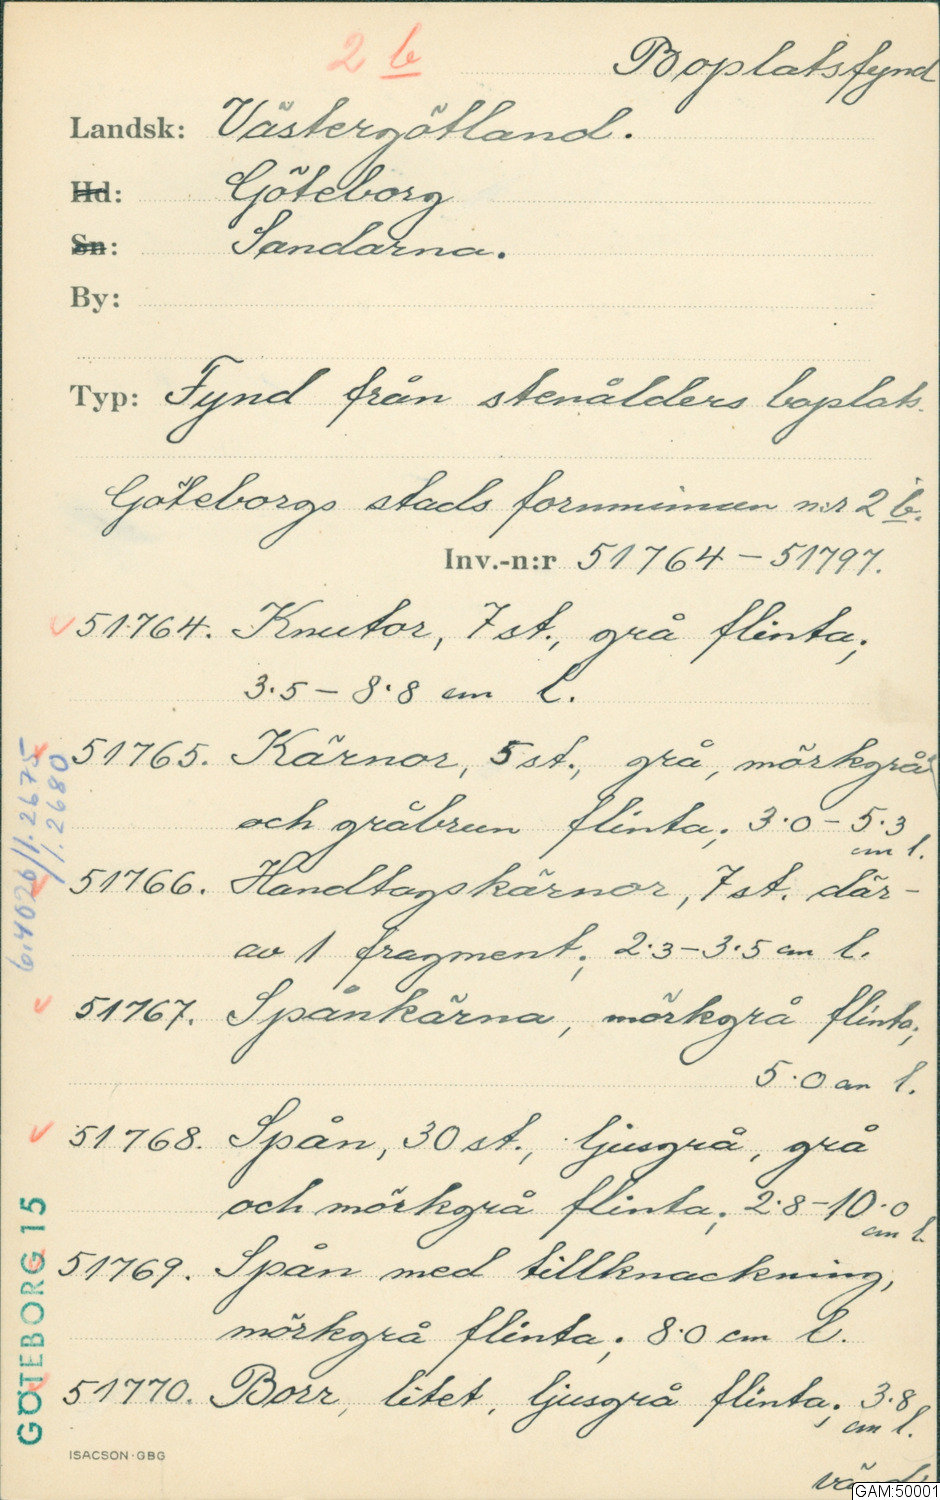 2 b
Boplatsfynd
Landsk: Västergötland.
Hd: Göteborg
Sn: Sandarna.
By:
Typ: Fynd från stenålders boplats.
Göteborgs stads fornminnen n:r 2 b.
Inv.-n:r 51764 – 51797.
51764. Knutor, 7 st., grå flinta;
3.5 – 8.8 cm l.
51765. Kärnor, 5 st., grå, mörkgrå
och gråbrun flinta; 3.0 – 5.3
cm l.
51766. Handtagskärnor, 7 st. där-
av 1 fragment; 2.3 – 3.5 cm l.
51767. Spånkärna, mörkgrå flinta;
5.0 cm l.
51768. Spån, 30 st., ljusgrå, grå
och mörkgrå flinta; 2.8 – 10.0
cm l.
51769. Spån med tillknackning,
mörkgrå flinta; 8.0 cm l.
51770. Borr, litet, ljusgrå flinta; 3.8
cm l.
GÖTEBORG 15
ISACSON·GBG
GAM:50001